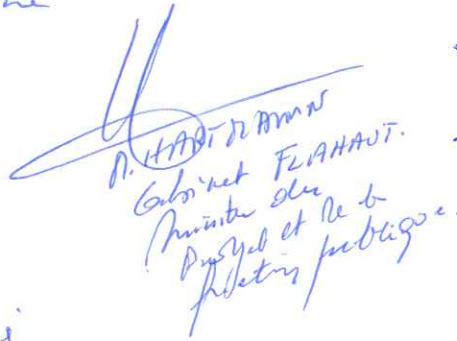 M. HARTMANN
Cabinet FLAHAUT.
Ministre du
Budget et de la
fonction publique.